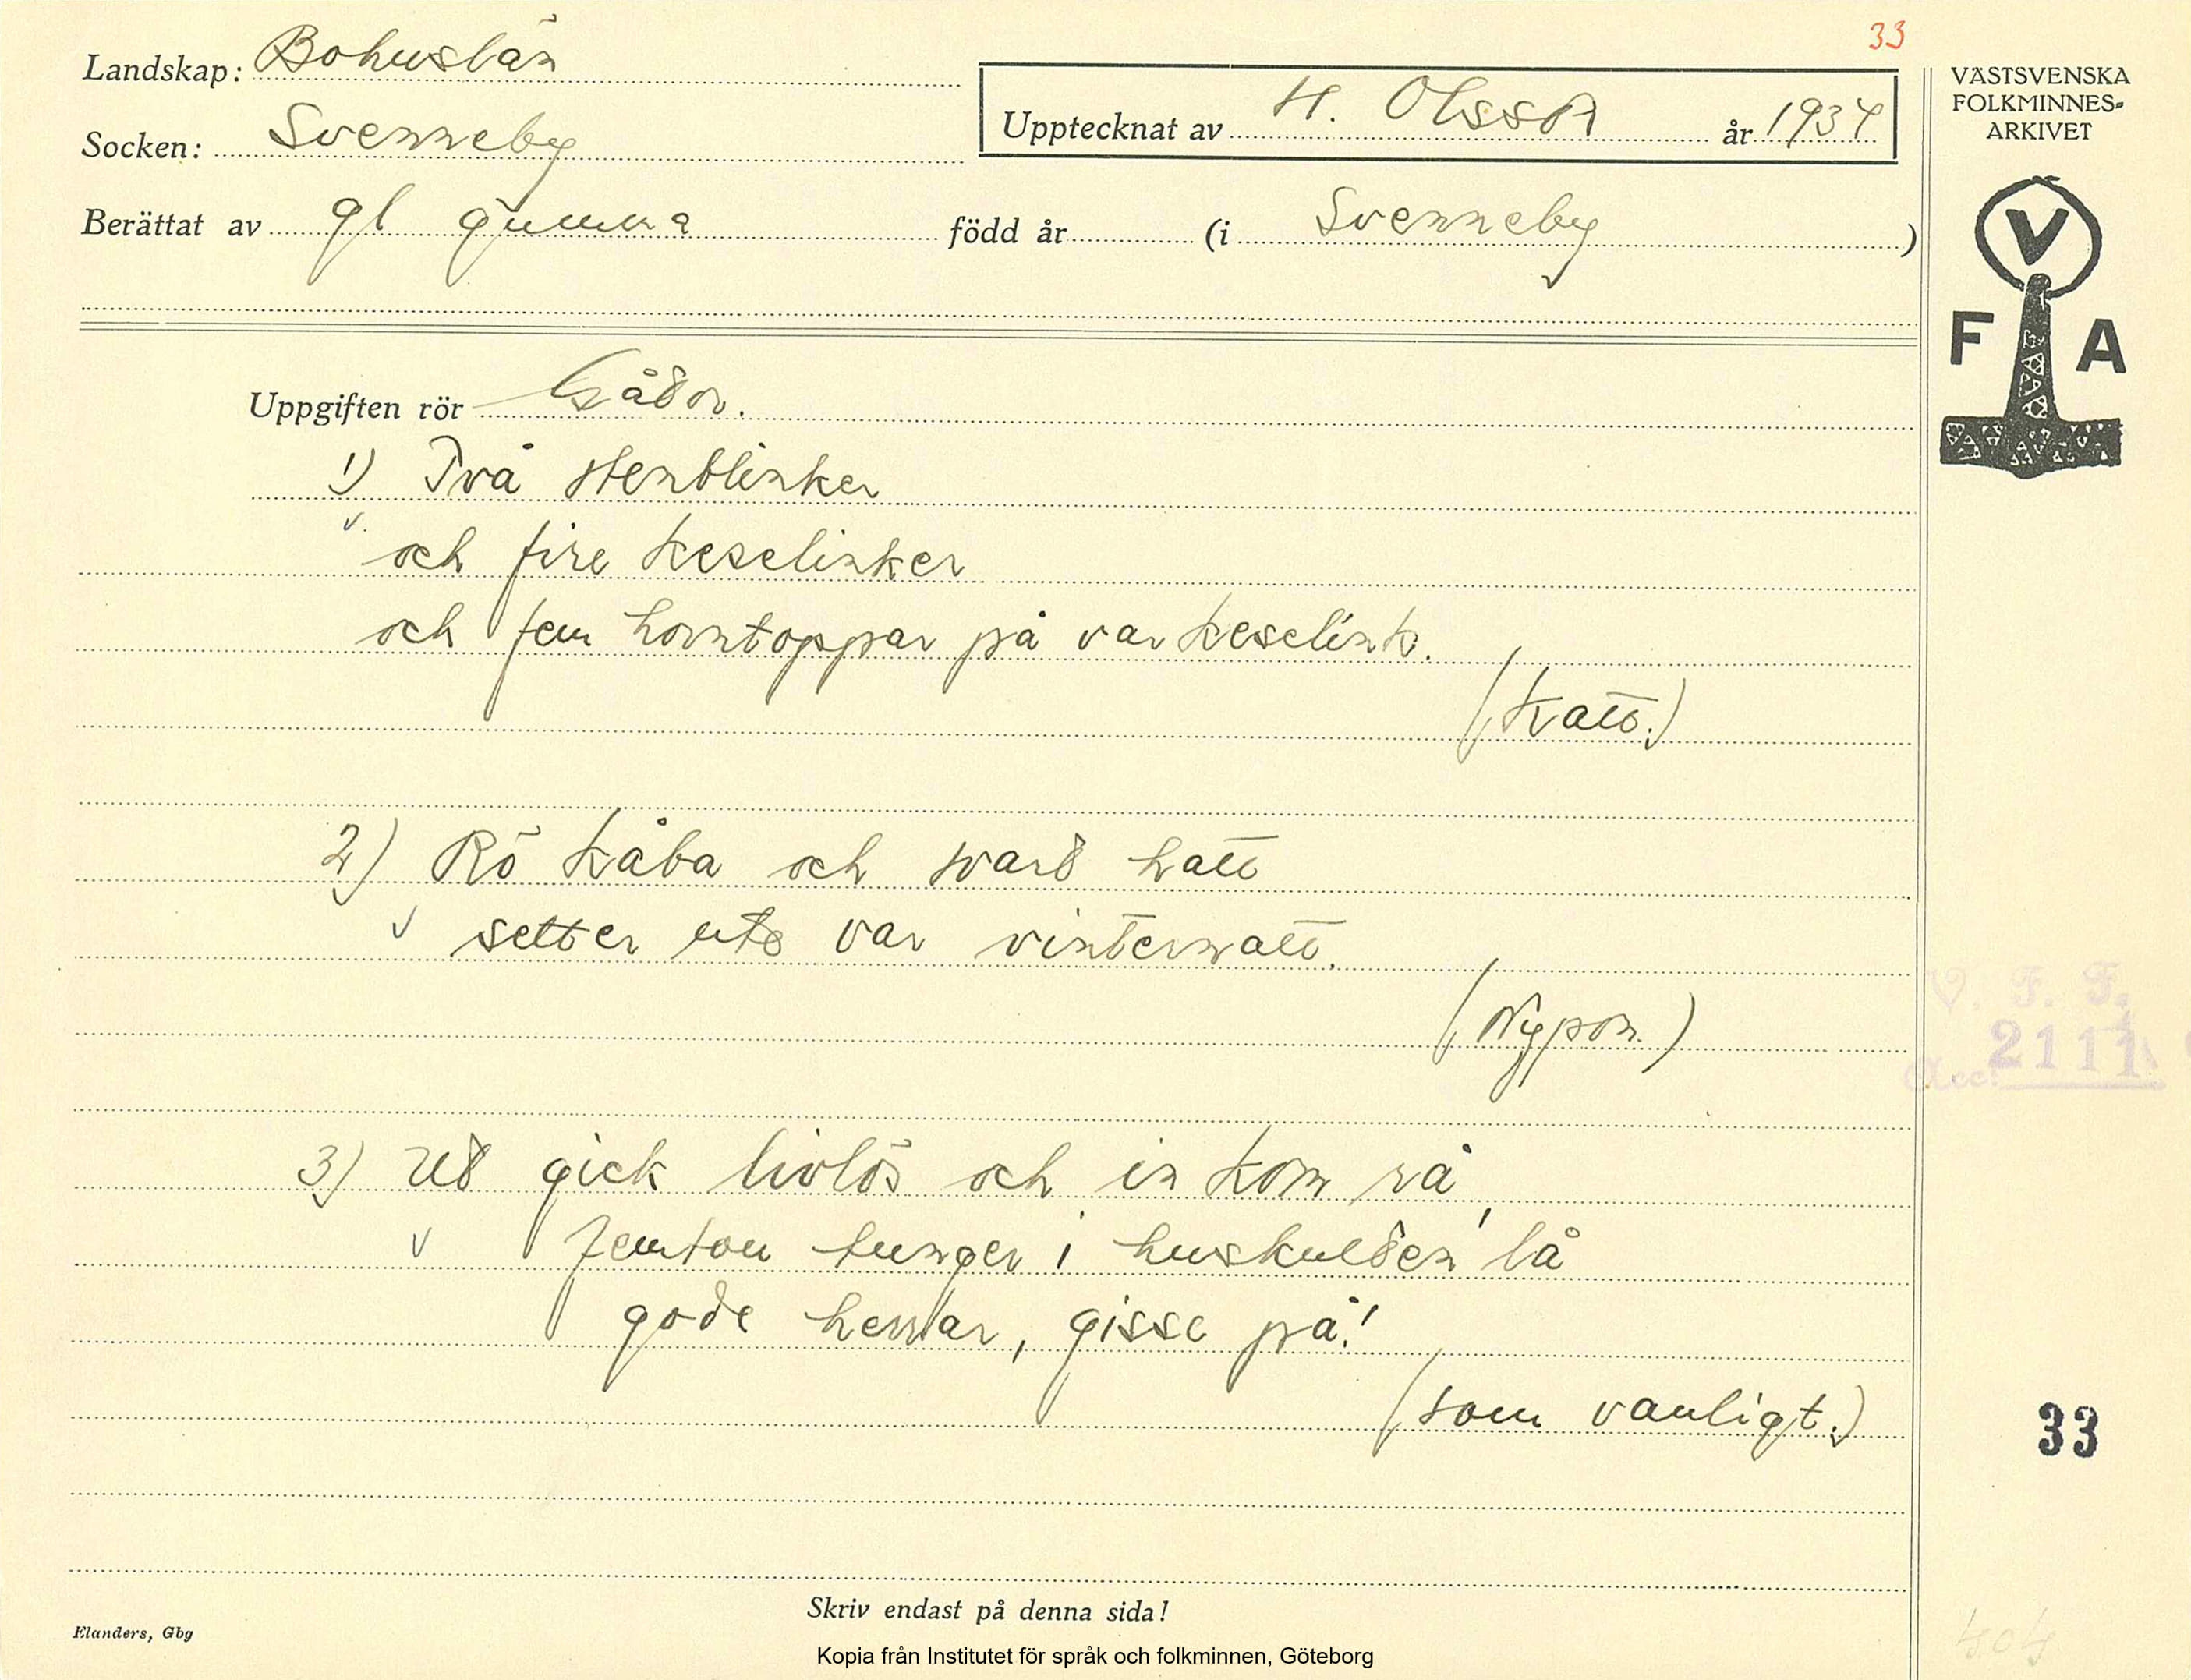 33
Landskap: Bohuslän
Upptecknat av H. Olsson år 1934
VÄSTSVENSKA
FOLKMINNES-
ARKIVET
Socken: Svenneby
Berättat av gl gumma född år (i Svenneby)
V
F A
Uppgiften rör Gåtor.
1) Två stenblinker
och fire keselinker
och fem horntoppar på var keselink.
(Katt.)
2) Rö kåba och svart hatt
setter ute var vinternatt.
(Nypon.)
V. F. F.
Acc. 2111
3) Ut gick livlös och in kom rå,
femton tunger i huskulten lå
gode herrar, gisse på!
(som vanligt.)
33
Skriv endast på denna sida!
Elanders, Gbg
Kopia från Institutet för språk och folkminnen, Göteborg
404